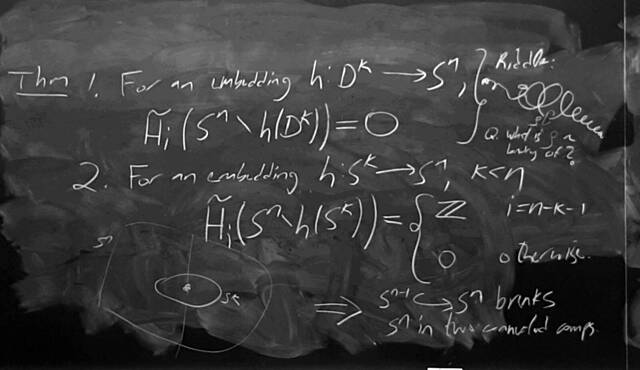 Thm 1. For an embedding h: D^k → S^n,
H̃_i(S^n \ h(D^k)) = 0
Riddle:
Q. What is
2. For an embedding h: S^k → S^n, k<n
H̃_i(S^n \ h(S^k)) = { ℤ i=n-k-1
0 otherwise.
S^n
S^k
⇒ S^{n-1} ↪ S^n breaks
S^n in two connected comps.